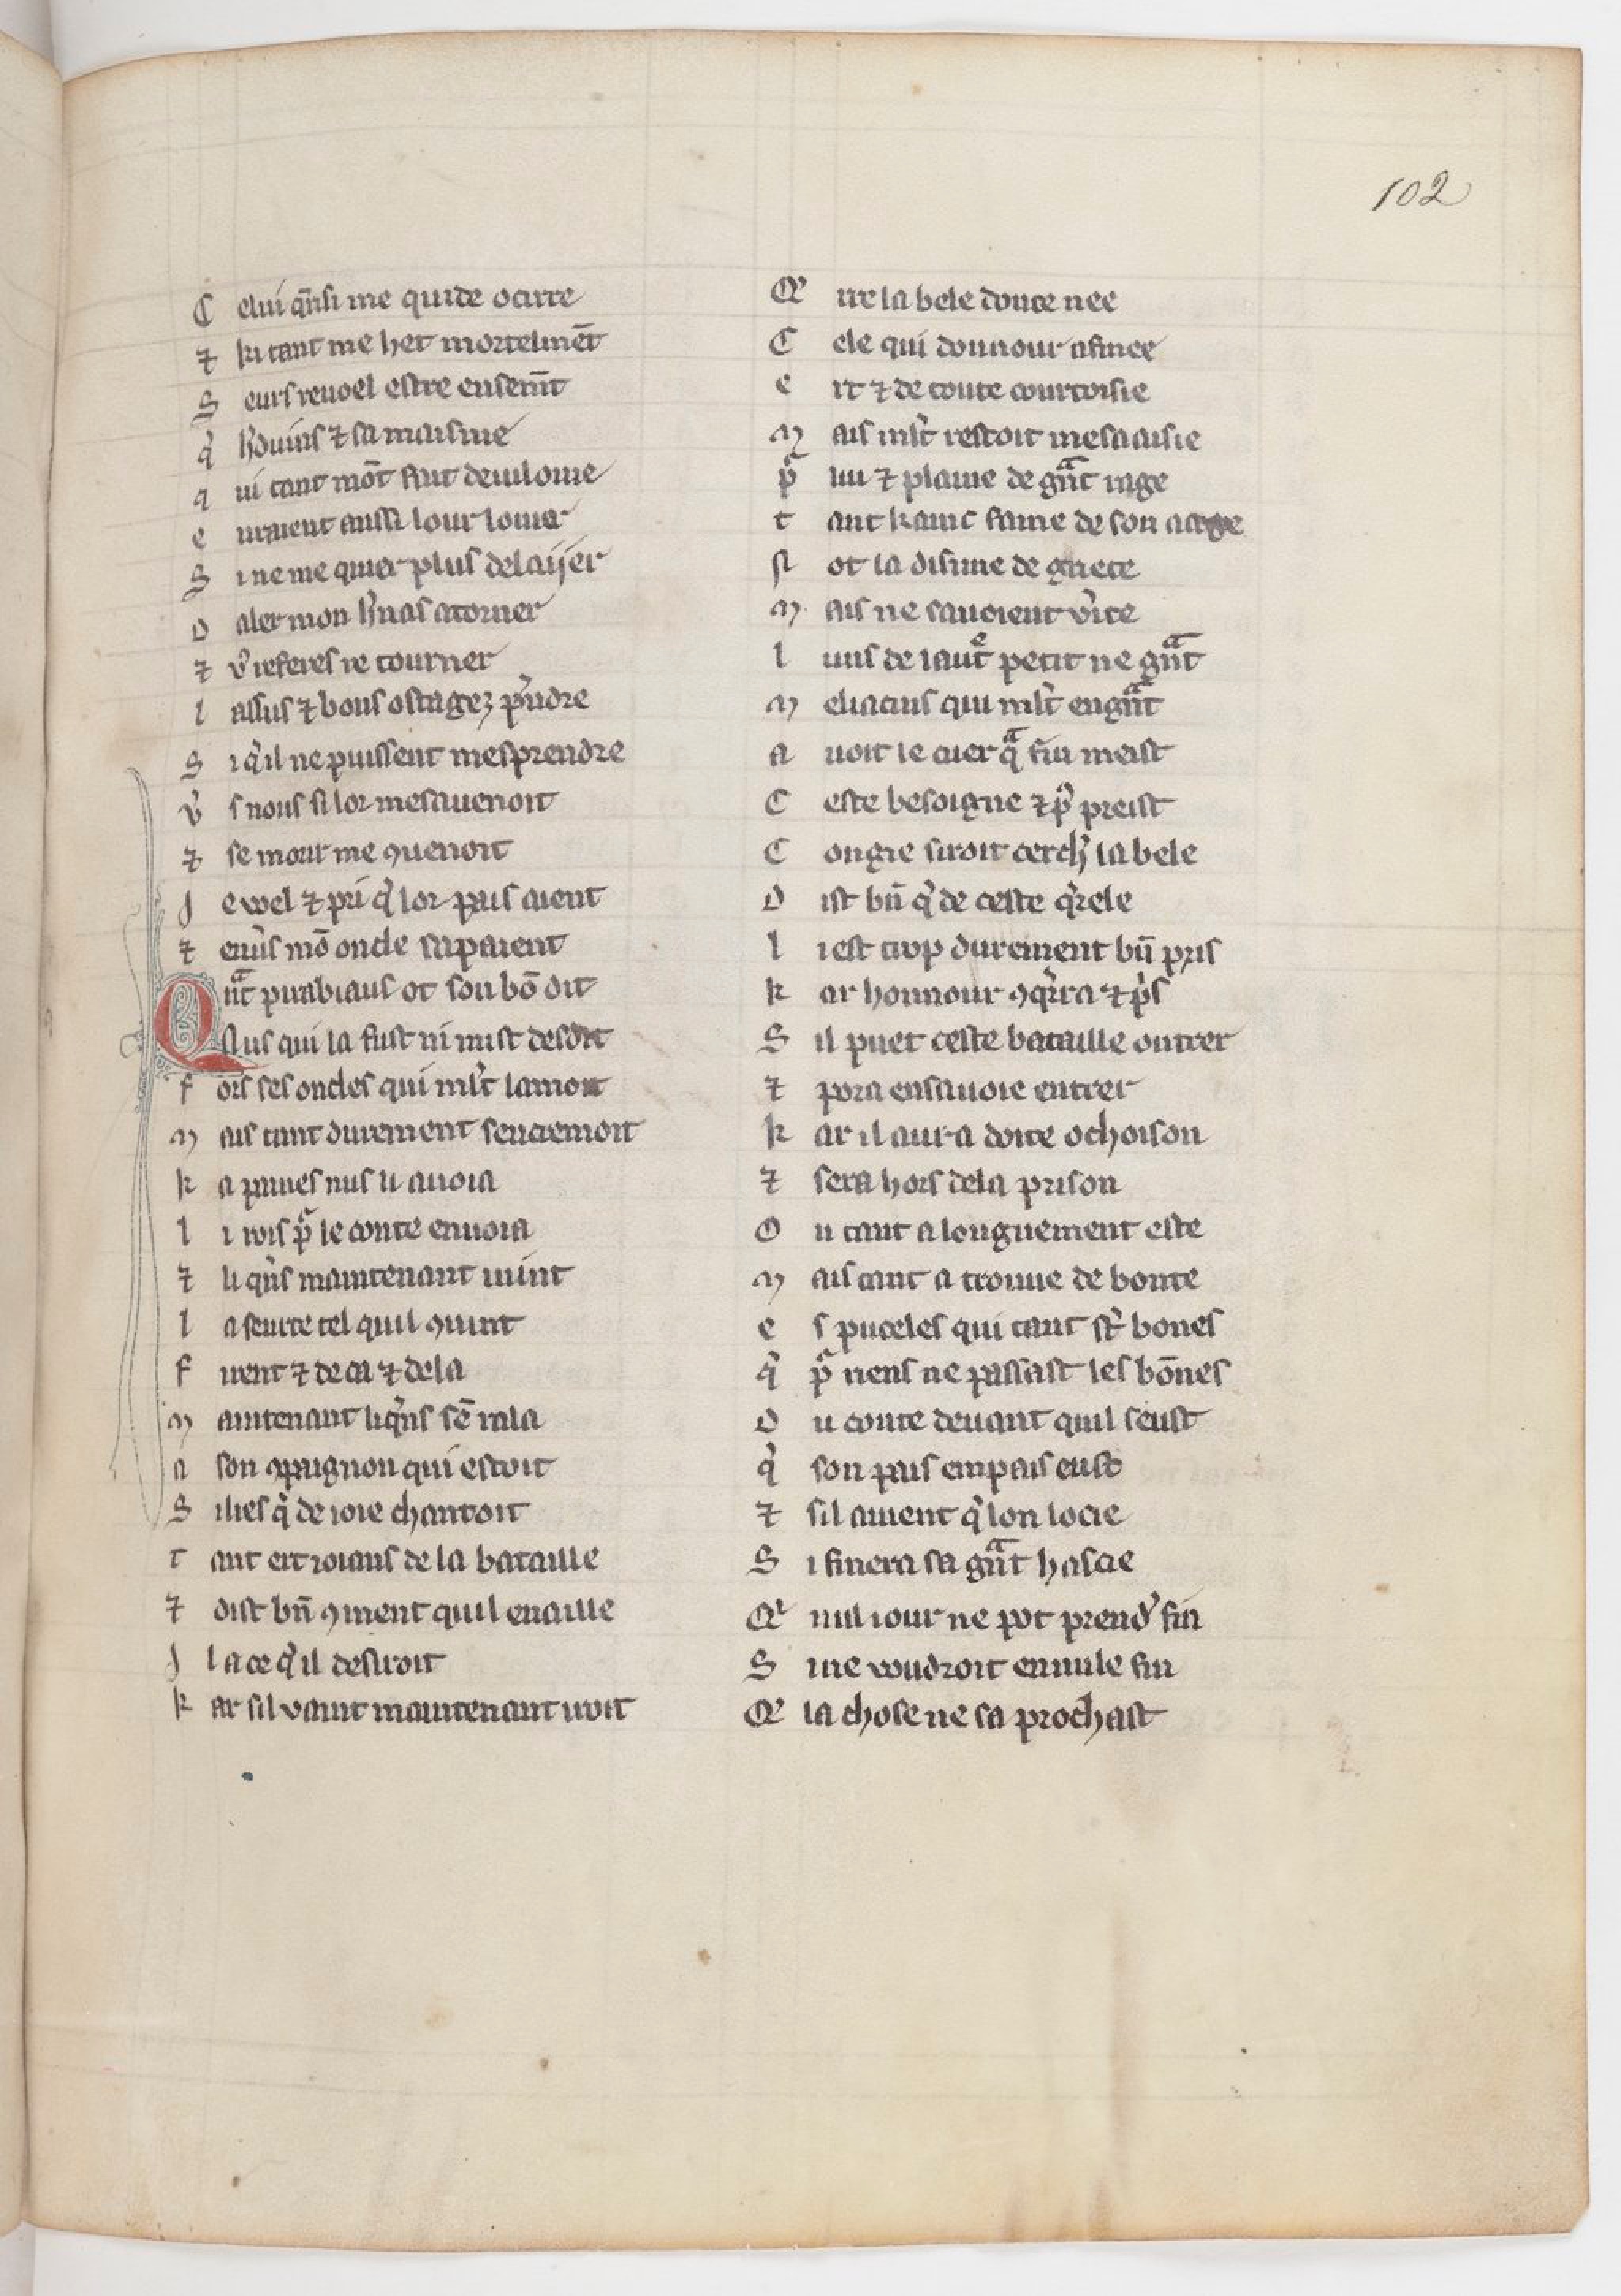 102
C elui qn̄si me quide ocirre
⁊ ki tant me het mortelmēt
S eurs reuoel estre ensem̄t
q̉ h̉ouins ⁊ sa maisnie
q ui tant mōt fait deuilonie
e uraient aussi lour louier
S i ne me quier plus delaijer
D aler mon h̉nas atorner
⁊ v̉ referes re tourner
l assus ⁊ bons ostagez p̉ndre
S i q̉ il ne puissent mesprendre
v̉ s nous si lor mesauenoit
⁊ se morir me ꝯuenoit
J e voel ⁊ pri q̉ lor pais aient
⁊ enũs mō oncle sapaient
Q nͣt purabiaus ot son bō dit
N us qui la fust ni mist desdit
f ors ses oncles qui ml̉t lamoit
m ais tant durement sentremoit
k a paines nus li anoia
l i rois pͣ le conte enuoia
⁊ li q̉ns maintenant uint
l a seurte tel quil ꝯuint
f irent ⁊ de ca ⁊ de la
m aintenant li q̉ns sē rala
a son ꝯpaignon qui estoit
S i lies q̉ de ioie chantoit
t ant ert ioians de la bataille
⁊ dist bn̄ ꝯment quil en aille
J l a ce q̉ il desiroit
k ar sil vaint maintenant uoit
Q̉ rre la bele douce nee
C ele qui donnour afinee
e rt ⁊ de toute courtoisie
m ais ml̉t restoit mesaaisie
pͣ lui ⁊ plaine de gͣnt irage
t ant kainc fame de son aage
N ot la disime de griete
m ais ne sauoient v̉ite
l uns de lautͤ petit ne gͣnt
m eliacins qui ml̉t en gͣnt
a uoit le cuer qͣ fin meist
C este besoigne ⁊ pͣ preist
C ongie siroit cerch̉ la bele
D ist bn̄ q̉ de ceste q̉rele
l i est trop durement bn̄ pris
k ar honnour ꝯq̉rra ⁊ p̉s
S il puet ceste bataille outrer
⁊ pora en sa uoie entrer
k ar il aura doite ochoison
⁊ sera hors de la prison
O u tant a longuement este
m ais tant a trouue de bonte
e s puceles qui tant st̉ bones
q̉ pͣ riens ne passast les bōnes
D u conte deuant quil seust
q̉ son pais em pais eust
⁊ sil auient q̉ lon locie
S i finera sa gͣnt hascie
Q̉ nul iour ne pot prend̉ fin
S i ne voudroit en nule fin
Q̉ la chose ne sa prochast